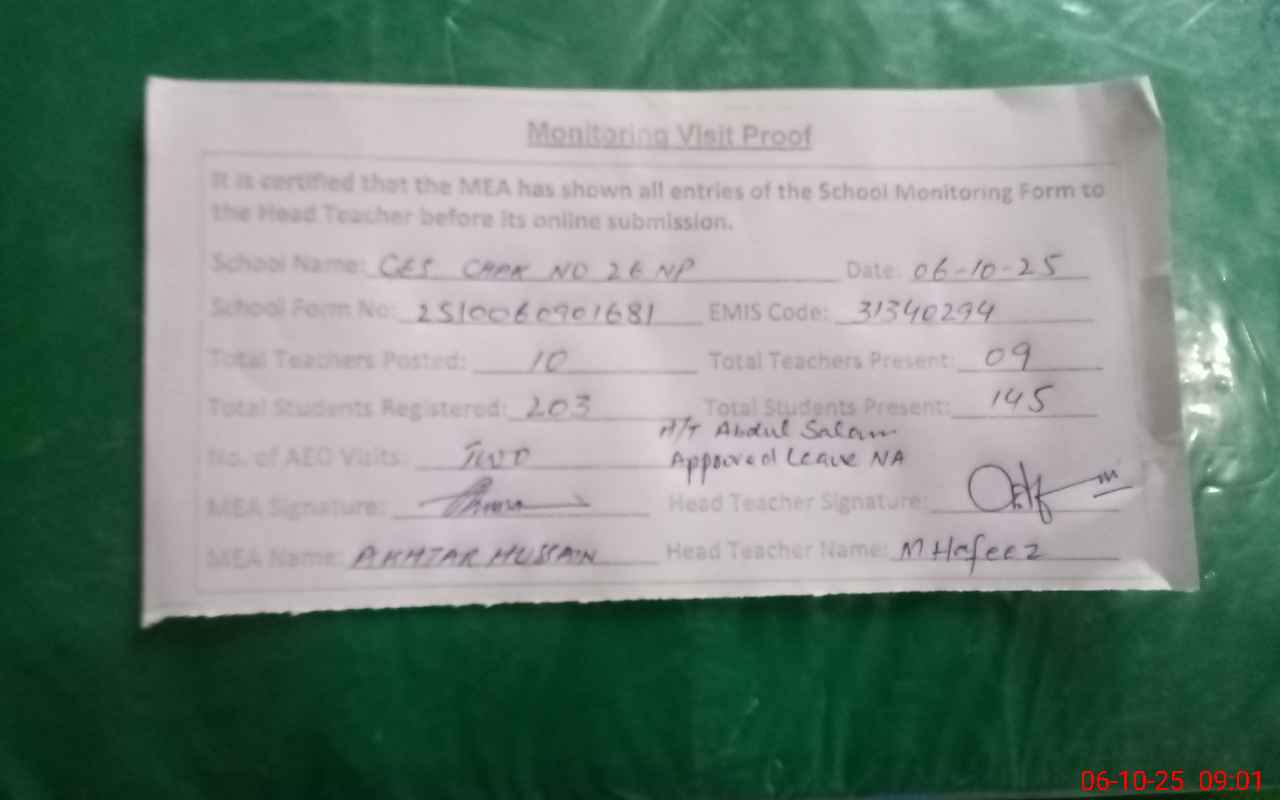 Monitoring Visit Proof
It is certified that the MEA has shown all entries of the School Monitoring Form to
the Head Teacher before its online submission.
School Name: GES CHAK NO 26 NP Date: 06-10-25
School Form No: 2510060901681 EMIS Code: 31340294
Total Teachers Posted: 10 Total Teachers Present: 09
Total Students Registered: 203 Total Students Present: 145
H/T Abdul Salam
No. of AEO Visits: TWO Approved Leave NA
MEA Signature: Head Teacher Signature:
MEA Name: AKHTAR HUSSAIN Head Teacher Name: M Hafeez
06-10-25 09:01